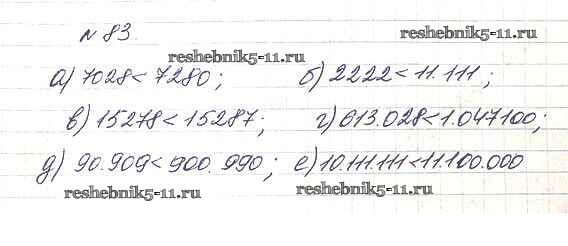 № 83.
reshebnik5-11.ru reshebnik5-11.ru
а) 7028 < 7280; б) 2222 < 11.111;
в) 15278 < 15287; г) 613.028 < 1.047100;
д) 90.909 < 900.990; е) 10.111.111 < 11.100.000
reshebnik5-11.ru reshebnik5-11.ru